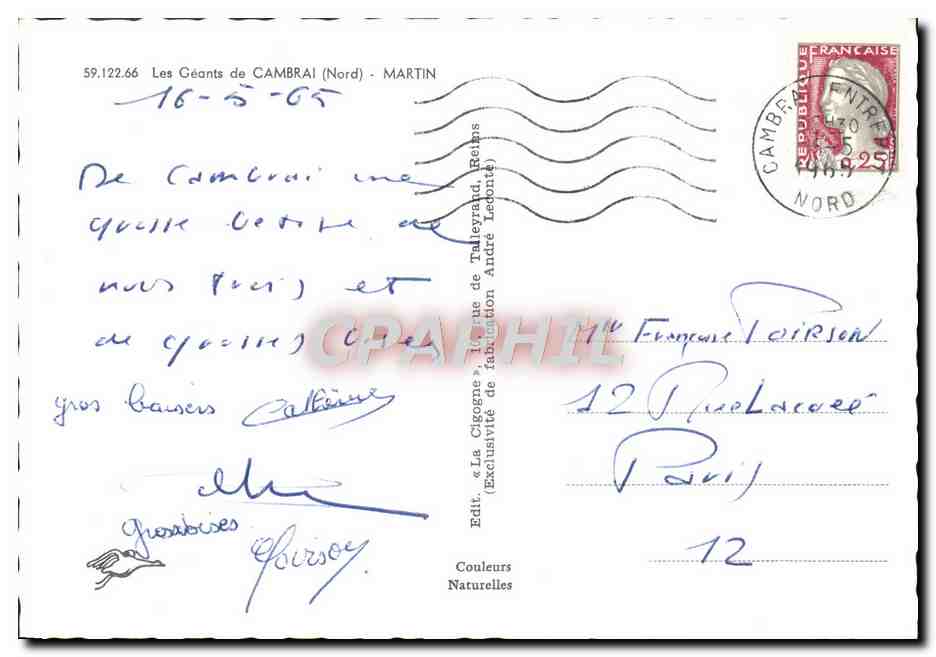 59.122.66 Les Géants de CAMBRAI (Nord) - MARTIN
16-5-65
De Cambrai une
grosse de
nous trois et
de grosses
gros baisers Catherine
grosses bises
Poirson
Couleurs
Naturelles
Edit. « La Cigogne », 10, rue de Talleyrand, Reims
(Exclusivité de fabrication André Leconte)
CPAPHIL
REPUBLIQUE FRANÇAISE
0.25
CAMBRAI ENTREPÔT
NORD
1965
Mlle Françoise POIRSON
12 Rue Lacuée
Paris
12